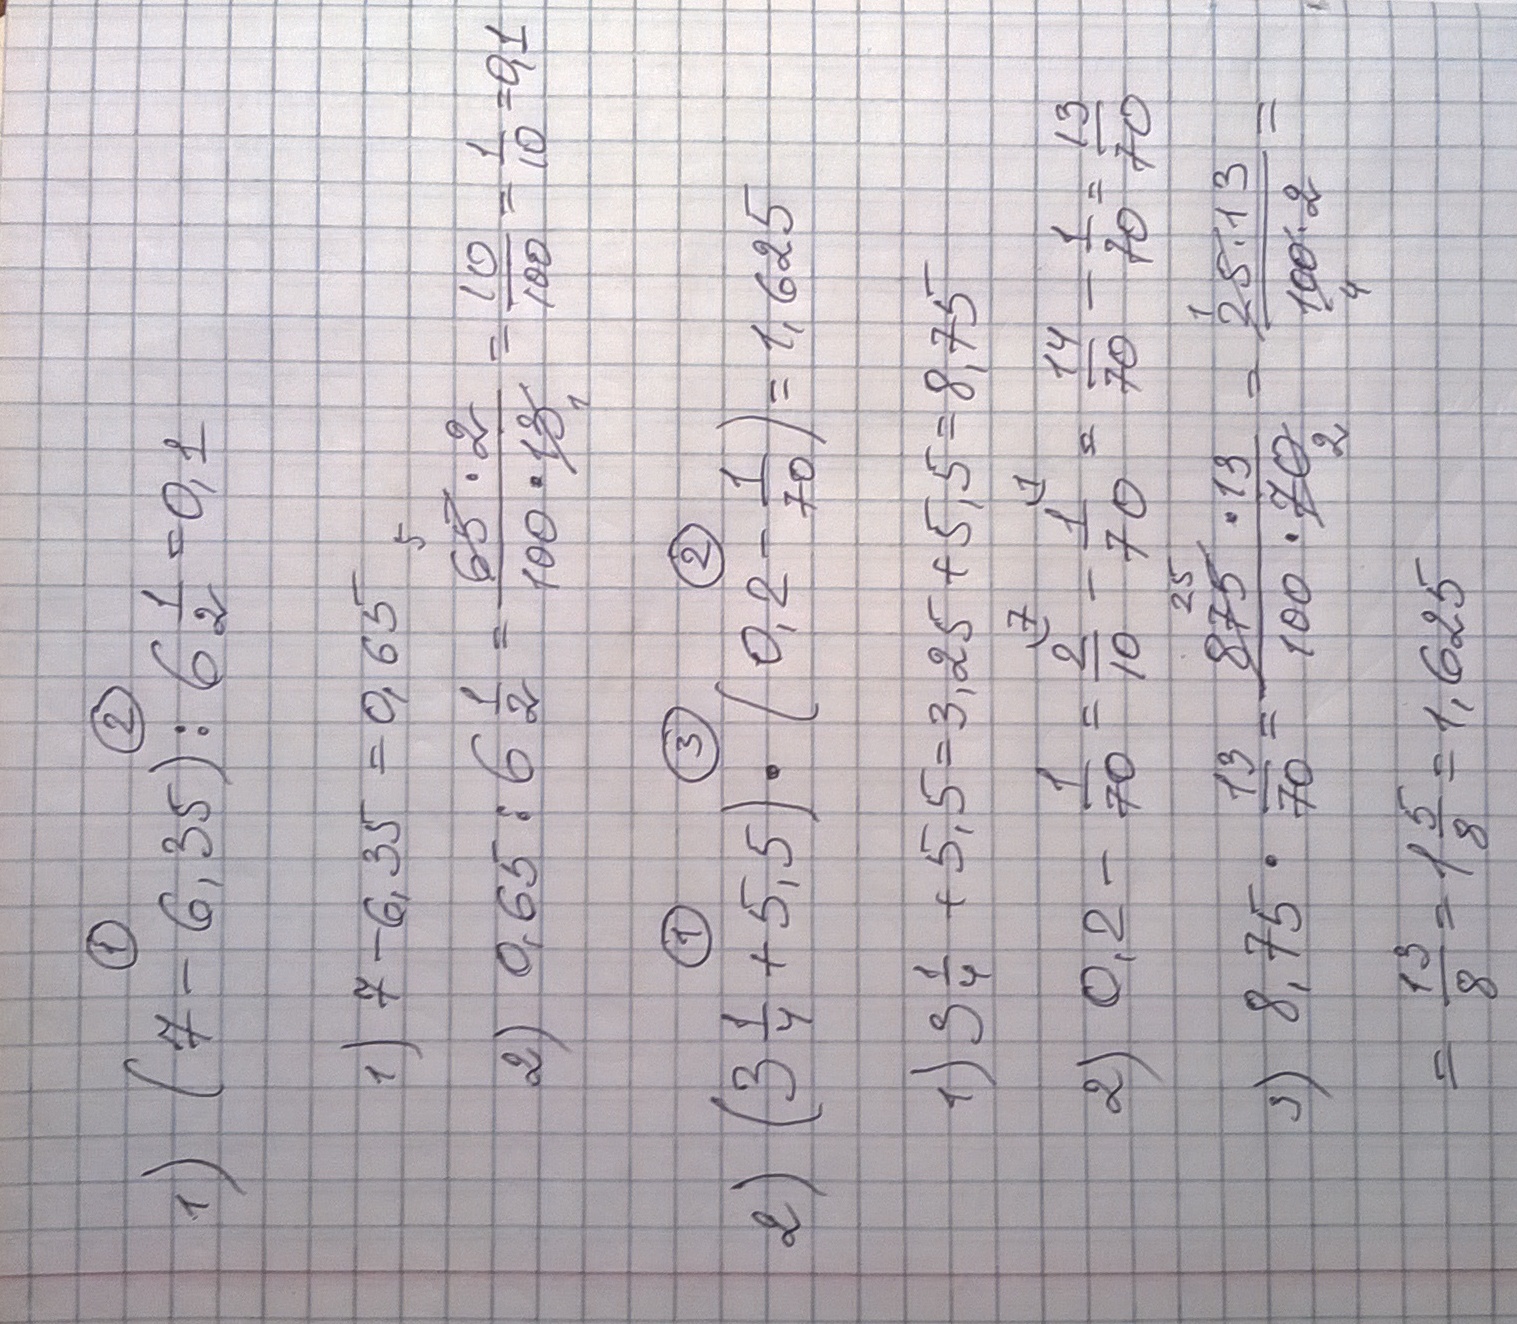 ① ②
1) (7 - 6,35) : 6 1/2 = 0,1
1) 7 - 6,35 = 0,65
2) 0,65 : 6 1/2 = 65 · 2 / 100 · 13 = 10/100 = 1/10 = 0,1
5
1
① ③ ②
2) (3 1/4 + 5,5) · (0,2 - 1/70) = 1,625
1) 3 1/4 + 5,5 = 3,25 + 5,5 = 8,75
7 1
2) 0,2 - 1/70 = 2/10 - 1/70 = 14/70 - 1/70 = 13/70
25 1
3) 8,75 · 13/70 = 875 · 13 / 100 · 70 = 25 · 13 / 100 · 2 =
2 4
= 13/8 = 1 5/8 = 1,625